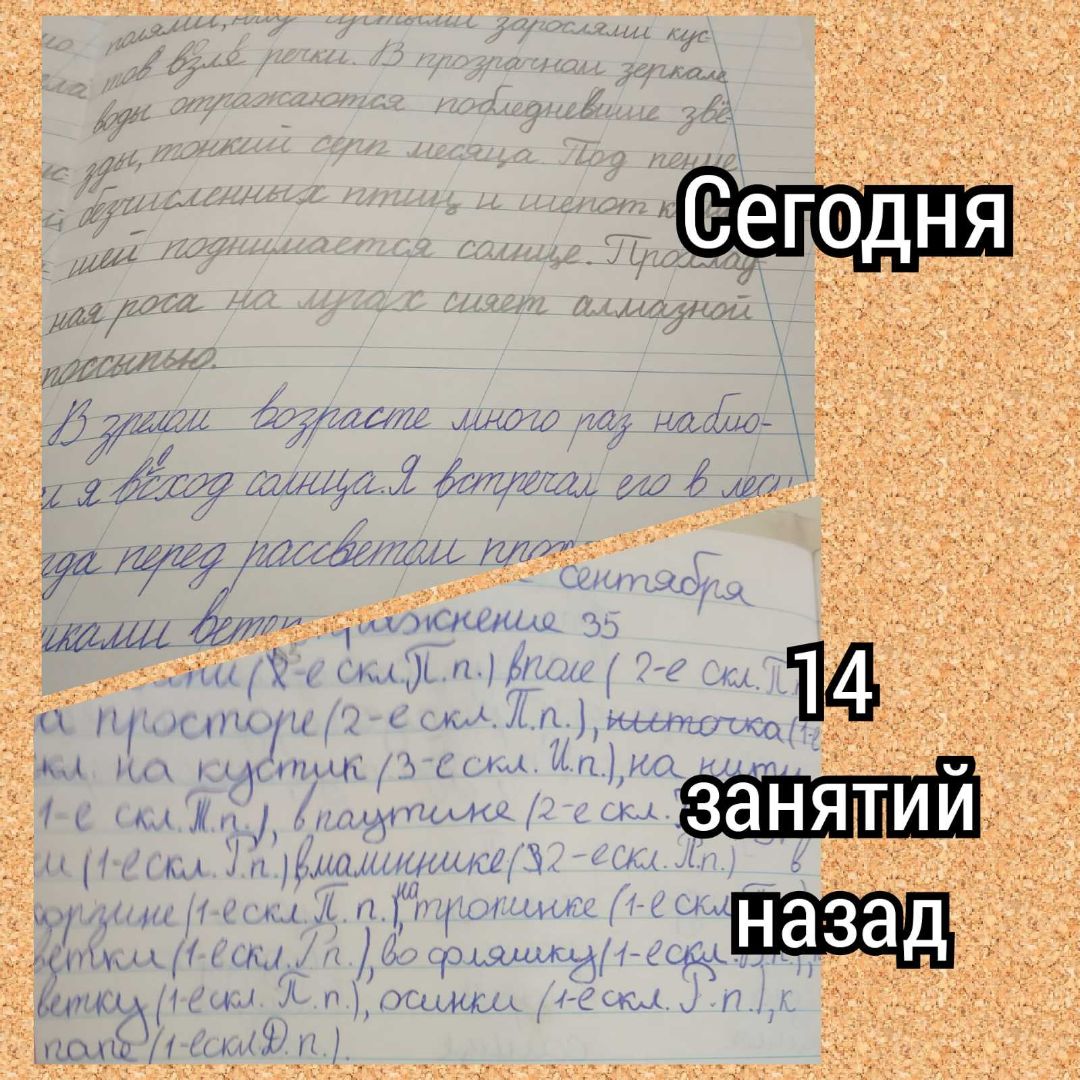 полями, над густыми зарослями кус
тов взле речки. В прозрачном зеркале
воды отражаются побледневшие звё-
зды, тонкий серп месяца Под пение
безчисленных птиц и шепот
шей поднимается солнце. Прохлад
ная роса на лугах сияет алмазной
поссыпью.
В зрелом возрасте много раз наблю-
я восход солнца. Я встречал его в лесу
перед рассветом
Сегодня
сентября
35
2-е скл. П.п.) в поле ( 2-е скл. П
просторе (2-е скл. П.п.), ниточка (1-е
на кустик (3-е скл. И.п.), на нити
1-е скл. Т.п.), в паутине (2-е скл.
(1-е скл. Г.п.) в малиннике (2-е скл. П.п.) в
(1-е скл. П.п.), на тропинке (1-е скл
(1-е скл. Г.п.), во фляшку (1-е скл. В.п.),
ветку (1-е скл. П.п.), осинки (1-е скл. Г.п.), к
папе (1-е скл Д.п.).
14
занятий
назад